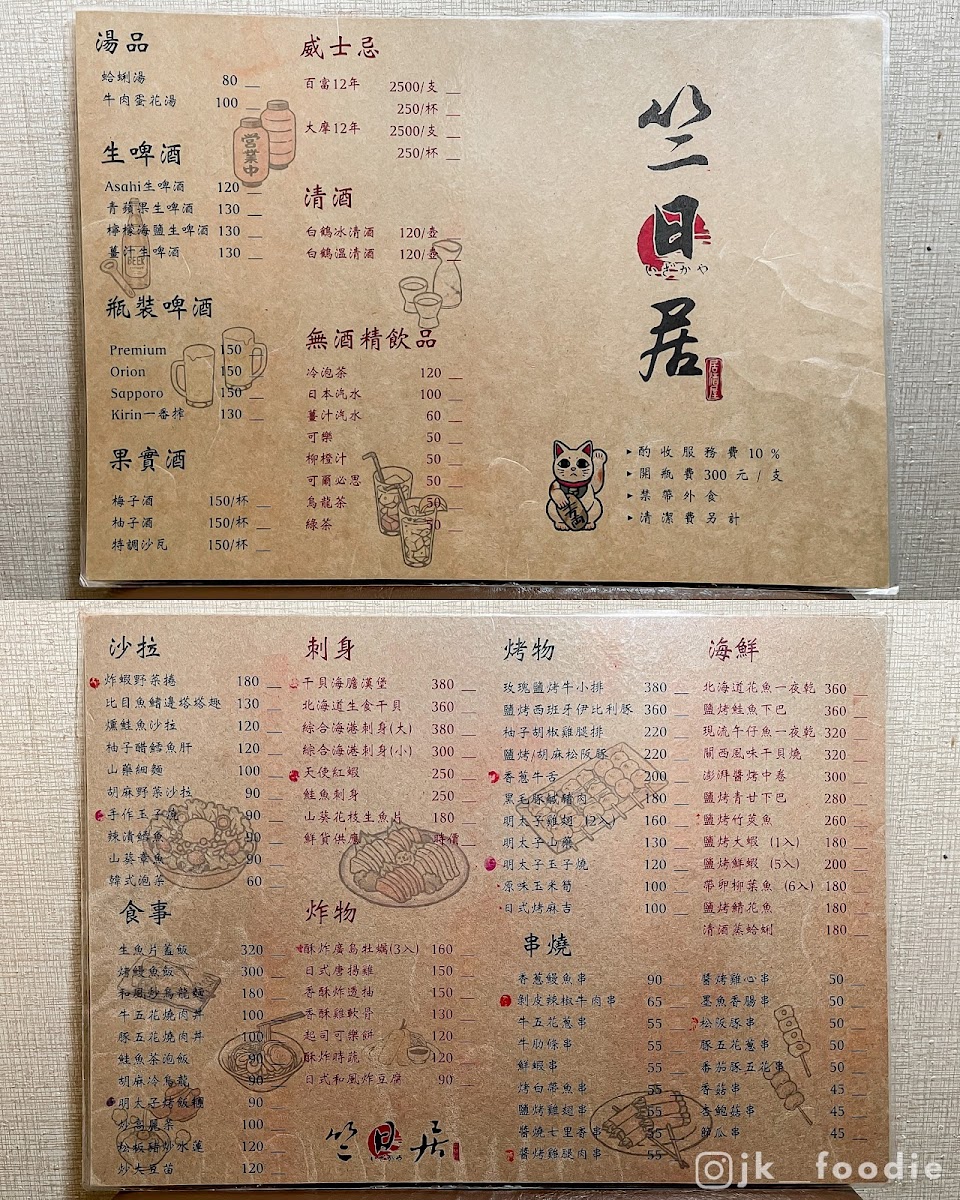 湯品
蛤蜊湯 80
牛肉蛋花湯 100
生啤酒
Asahi生啤酒 120
青蘋果生啤酒 130
檸檬海鹽生啤酒 130
薑汁生啤酒 130
瓶裝啤酒
Premium 150
Orion 150
Sapporo 150
Kirin一番搾 130
果實酒
梅子酒 150/杯
柚子酒 150/杯
特調沙瓦 150/杯
営業中
BEER
威士忌
百富12年 2500/支
250/杯
大摩12年 2500/支
250/杯
清酒
白鶴冰清酒 120/壺
白鶴溫清酒 120/壺
無酒精飲品
冷泡茶 120
日本汽水 100
薑汁汽水 60
可樂 50
柳橙汁 50
可爾必思 50
烏龍茶 50
綠茶 50
竺日居
いざかや
居酒屋
▸酌收服務費10%
▸開瓶費300元/支
▸禁帶外食
▸清潔費另計
沙拉
炸蝦野菜捲 180
比目魚鰭邊塔塔趣 130
燻鮭魚沙拉 120
柚子醋鱈魚肝 120
山藥細麵 100
胡麻野菜沙拉 90
手作玉子燒 90
辣漬鱈魚 90
山葵章魚 90
韓式泡菜 60
食事
生魚片蓋飯 320
烤鰻魚飯 300
和風炒烏龍麵 180
牛五花燒肉丼 100
豚五花燒肉丼 100
鮭魚茶泡飯 90
胡麻冷烏龍 90
明太子烤飯糰 90
炒高麗菜 100
松板豬炒水蓮 120
炒大豆苗 120
刺身
干貝海膽漢堡 380
北海道生食干貝 360
綜合海港刺身(大) 380
綜合海港刺身(小) 300
天使紅蝦 250
鮭魚刺身 250
山葵花枝生魚片 180
鮮貨供應 時價
炸物
酥炸廣島牡蠣(3入) 160
日式唐揚雞 150
香酥炸透抽 150
香酥雞軟骨 130
起司可樂餅 120
酥炸時蔬 120
日式和風炸豆腐 90
竺日居
烤物
玫瑰鹽烤牛小排 380
鹽烤西班牙伊比利豚 360
柚子胡椒雞腿排 220
鹽烤/胡麻松阪豚 220
香蔥牛舌 200
黑毛豚鹹豬肉 180
明太子雞翅 (2入) 160
明太子山藥 130
明太子玉子燒 120
原味玉米筍 100
日式烤麻吉 100
海鮮
北海道花魚一夜乾 360
鹽烤鮭魚下巴 360
現流午仔魚一夜乾 320
關西風味干貝燒 320
澎湃醬烤中卷 300
鹽烤青甘下巴 280
鹽烤竹莢魚 260
鹽烤大蝦 (1入) 180
鹽烤鮮蝦 (5入) 200
帶卵柳葉魚 (6入) 180
鹽烤鯖花魚 180
清酒蒸蛤蜊 180
串燒
香蔥鰻魚串 90
剝皮辣椒牛肉串 65
牛五花蔥串 55
牛肋條串 55
鮮蝦串 55
烤白帶魚串 55
鹽烤雞翅串 55
醬燒七里香串 55
醬烤雞腿肉串 55
醬烤雞心串 50
墨魚香腸串 50
松阪豚串 50
豚五花蔥串 50
番茄豚五花串 50
香菇串 45
杏鮑菇串 45
節瓜串 45
jk__foodie